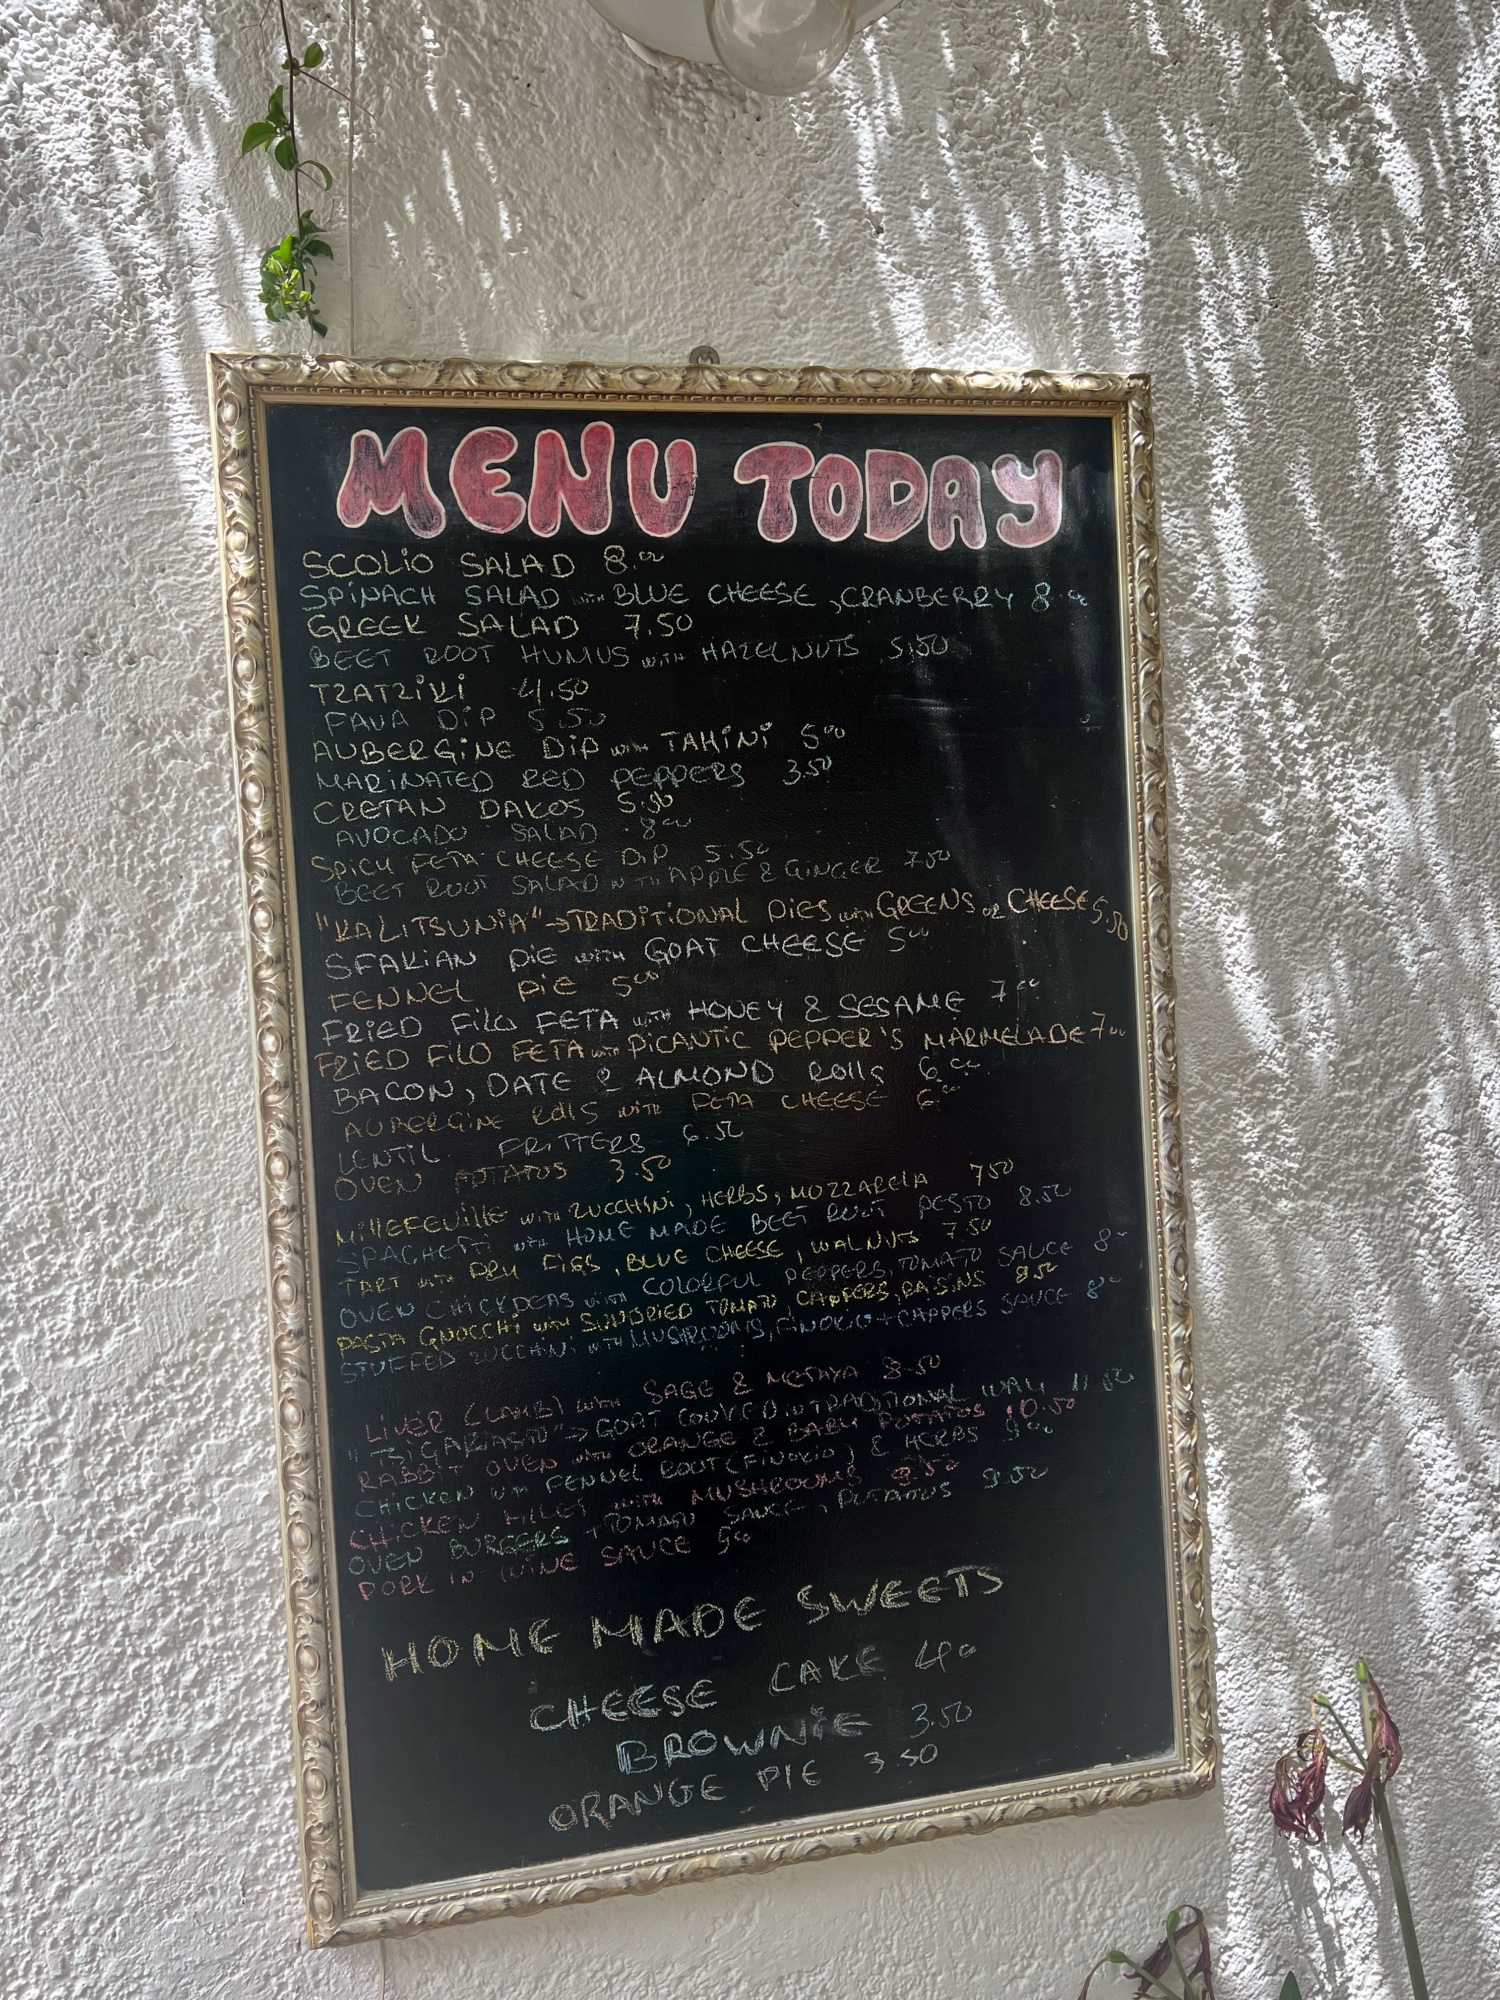 MENU TODAY
SCOLIO SALAD 8.00
SPINACH SALAD WITH BLUE CHEESE, CRANBERRY 8.00
GREEK SALAD 7.50
BEET ROOT HUMUS WITH HAZELNUTS 5.50
TZATZIKI 4.50
FAVA DIP 5.50
AUBERGINE DIP WITH TAHINI 5.00
MARINATED RED PEPPERS 3.50
CRETAN DAKOS 5.50
AVOCADO SALAD 8.00
SPICY FETA CHEESE DIP 5.50
BEET ROOT SALAD WITH APPLE & GINGER 7.50
"KALITSUNIA" → TRADITIONAL PIES WITH GREENS OR CHEESE 5.50
SFAKIAN PIE WITH GOAT CHEESE 5.00
FENNEL PIE 5.00
FRIED FILO FETA WITH HONEY & SESAME 7.00
FRIED FILO FETA WITH PICANTIC PEPPER'S MARMELADE 7.00
BACON, DATE & ALMOND ROLLS 6.00
AUBERGINE ROLLS WITH FETA CHEESE 6.00
LENTIL FRITTERS 6.50
OVEN POTATOS 3.50
MILLEFEUILLE WITH ZUCCHINI, HERBS, MOZZARELA 7.50
SPAGHETTI WITH HOME MADE BEET ROOT PESTO 8.50
TART WITH DRY FIGS, BLUE CHEESE, WALNUTS 7.50
OVEN CHICKPEAS WITH COLORFUL PEPPERS, TOMATO SAUCE 8
PASTA GNOCCHI WITH SUNDRIED TOMATO, CAPPERS, RAISINS 8.50
STUFFED ZUCCHINI WITH MUSHROOMS, FINOKIO + CAPPERS SAUCE 8
LIVER (LAMB) WITH SAGE & METAXA 8.50
"TSIGARIASTO" → GOAT COOKED IN TRADITIONAL WAY 11.50
RABBIT OVEN WITH ORANGE & BABY POTATOS 10.50
CHICKEN WITH FENNEL ROOT (FINOKIO) & HERBS 9.00
CHICKEN FILLET WITH MUSHROOMS 9.50
OVEN BURGERS + TOMATO SAUCE, POTATOS 9.50
PORK IN WINE SAUCE 9.00
HOME MADE SWEETS
CHEESE CAKE 4.00
BROWNIE 3.50
ORANGE PIE 3.50